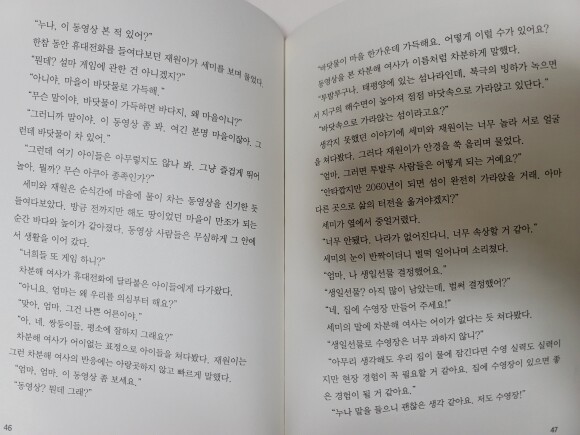 "누나, 이 동영상 본 적 있어?"
한참 동안 휴대전화를 들여다보던 재원이가 세미를 보며 물었다.
"뭔데? 설마 게임에 관한 건 아니겠지?"
"아니야. 마을이 바닷물로 가득해."
"무슨 말이야. 바닷물이 가득하면 바다지, 왜 마을이니?"
"그러니까 말이야. 이 동영상 좀 봐. 여긴 분명 마을이잖아. 그
런데 바닷물이 차 있어."
"그런데 여기 아이들은 아무렇지도 않나 봐. 그냥 즐겁게 뛰어
놀아. 뭘까? 무슨 아쿠아 종족인가?"
세미와 재원은 순식간에 마을에 물이 차는 동영상을 신기한 듯
들여다보았다. 방금 전까지만 해도 땅이었던 마을이 만조가 되는
순간 바다와 높이가 같아졌다. 동영상 사람들은 무심하게 그 안에
서 생활을 이어 갔다.
"너희들 또 게임 하니?"
차분해 여사가 휴대전화에 달라붙은 아이들에게 다가왔다.
"아니요. 엄마는 왜 우리를 의심부터 해요?"
"맞아, 엄마. 그건 나쁜 어른이야."
"아, 네. 쌍둥이들, 평소에 잘하지 그래요?"
차분해 여사가 어이없는 표정으로 아이들을 쳐다봤다. 재원이는
그런 차분해 여사의 반응에는 아랑곳하지 않고 빠르게 말했다.
"엄마, 엄마. 이 동영상 좀 보세요."
"동영상? 뭔데 그래?"
46
"바닷물이 마을 한가운데 가득해요. 어떻게 이럴 수가 있어요?"
동영상을 본 차분해 여사가 이름처럼 차분하게 말했다.
"투발루구나. 태평양에 있는 섬나라인데, 북극의 빙하가 녹으면
서 지구의 해수면이 높아져 점점 바닷속으로 가라앉고 있단다."
"바닷속으로 가라앉는 섬이라고요?"
생각지 못했던 이야기에 세미와 재원이는 너무 놀라 서로 얼굴
을 쳐다봤다. 그러다 재원이가 안경을 쏙 올리며 물었다.
"엄마. 그러면 투발루 사람들은 어떻게 되는 거예요?"
"안타깝지만 2060년이 되면 섬이 완전히 가라앉을 거래. 아마
다른 곳으로 삶의 터전을 옮겨야겠지?"
세미가 옆에서 중얼거렸다.
"너무 안됐다. 나라가 없어진다니, 너무 속상할 거 같아."
세미의 눈이 반짝이더니 벌떡 일어나며 소리쳤다.
"엄마, 나 생일선물 결정했어요."
"생일선물? 아직 많이 남았는데, 벌써 결정했어?"
"네, 집에 수영장 만들어 주세요!"
세미의 말에 차분해 여사는 어이가 없다는 듯 쳐다봤다.
"생일선물로 수영장은 너무 과하지 않니?"
"아무리 생각해도 우리 집이 물에 잠긴다면 수영 실력도 실력이
지만 현장 경험이 꼭 필요할 거 같아요. 집에 수영장이 있으면 좋
은 경험이 될 거 같아요."
"누나 말을 들으니 괜찮은 생각 같아요. 저도 수영장!"
47